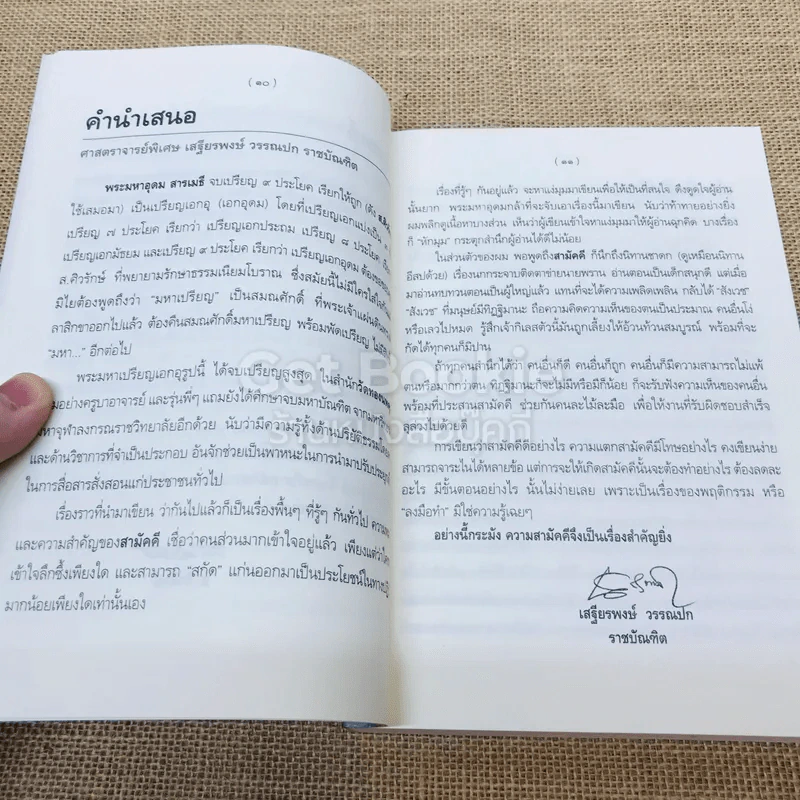 (๑๐)
คำนำเสนอ
ศาสตราจารย์พิเศษ เสฐียรพงษ์ วรรณปก ราชบัณฑิต
พระมหาอุดม สารเมธี จบเปรียญ ๙ ประโยค เรียกให้ถูก (ดัง
ใช้เสมอมา) เป็นเปรียญเอกอุ (เอกอุดม) โดยที่เปรียญเอกแบ่งเป็น
เปรียญ ๗ ประโยค เรียกว่า เปรียญเอกประถม เปรียญ ๘ ประโยค
เปรียญเอกมัธยม และเปรียญ ๙ ประโยค เรียกว่า เปรียญเอกอุดม
ส.ศิวรักษ์ ที่พยายามรักษาธรรมเนียมโบราณ ซึ่งสมัยนี้ไม่มีใครใส่ใจ
มิไยต้องพูดถึงว่า "มหาเปรียญ" เป็นสมณศักดิ์ ที่พระเจ้าแผ่นดิน
ลาสิกขาออกไปแล้ว ต้องคืนสมณศักดิ์มหาเปรียญ พร้อมพัดเปรียญ
"มหา..." อีกต่อไป
พระมหาเปรียญเอกอุรูปนี้ ได้จบเปรียญสูงสุด ในสำนัก
อย่างครูบาอาจารย์ และรุ่นพี่ๆ แถมยังได้ศึกษาจบมหาบัณฑิต จาก
มหาจุฬาลงกรณราชวิทยาลัยอีกด้วย นับว่ามีความรู้ทั้งด้านปริยัติธรรม
และด้านวิชาการที่จำเป็นประกอบ อันจักช่วยเป็นพาหนะในการนำมาปรับประยุกต์
ในการสื่อสารสั่งสอนแก่ประชาชนทั่วไป
เรื่องราวที่นำมาเขียน ว่ากันไปแล้วก็เป็นเรื่องพื้นๆ ที่รู้ๆ กันทั่วไป
และความสำคัญของสามัคคี เชื่อว่าคนส่วนมากเข้าใจอยู่แล้ว เพียงแต่ว่า
เข้าใจลึกซึ้งเพียงใด และสามารถ "สกัด" แก่นออกมาเป็นประโยชน์ใน
มากน้อยเพียงใดเท่านั้นเอง
(๑๑)
เรื่องที่รู้ๆ กันอยู่แล้ว จะหาแง่มุมมาเขียนเพื่อให้เป็นที่สนใจ ดึงดูดใจผู้อ่าน
นั้นยาก พระมหาอุดมกล้าที่จะจับเอาเรื่องนี้มาเขียน นับว่าท้าทายอย่างยิ่ง
ผมพลิกดูเนื้อหาบางส่วน เห็นว่าผู้เขียนเข้าใจหาแง่มุมมาให้ผู้อ่านฉุกคิด บางเรื่อง
ก็ "หักมุม" กระตุกสำนึกผู้อ่านได้ดีไม่น้อย
ในส่วนตัวของผม พอพูดถึงสามัคคี ก็นึกถึงนิทานชาดก (ดูเหมือนนิทาน
อีสปด้วย) เรื่องนกกระจาบติดตาข่ายนายพราน อ่านตอนเป็นเด็กสนุกดี แต่เมื่อ
มาอ่านทบทวนตอนเป็นผู้ใหญ่แล้ว แทนที่จะได้ความเพลิดเพลิน กลับได้ "สังเวช"
"สังเวช" ที่มนุษย์มีทิฏฐิมานะ ถือความคิดความเห็นของตนเป็นประมาณ คนอื่นโง่
หรือเลวไปหมด รู้สึกเจ้ากิเลสตัวนี้มันถูกเลี้ยงให้อ้วนท้วนสมบูรณ์ พร้อมที่จะ
กัดได้ทุกคนก็มีปาน
ถ้าทุกคนสำนึกได้ว่า คนอื่นก็ดี คนอื่นก็ถูก คนอื่นก็มีความสามารถไม่แพ้
ตนหรือมากกว่าตน ทิฏฐิมานะก็จะไม่มีหรือมีก็น้อย ก็จะรับฟังความเห็นของคนอื่น
พร้อมที่ประสานสามัคคี ช่วยกันคนละไม้ละมือ เพื่อให้งานที่รับผิดชอบสำเร็จ
ลุล่วงไปด้วยดี
การเขียนว่าสามัคคีดีอย่างไร ความแตกสามัคคีมีโทษอย่างไร คงเขียนง่าย
สามารถจาระไนได้หลายข้อ แต่การจะให้เกิดสามัคคีนั้นจะต้องทำอย่างไร ต้องลดละ
อะไร มีขั้นตอนอย่างไร นั้นไม่ง่ายเลย เพราะเป็นเรื่องของพฤติกรรม หรือ
"ลงมือทำ" มิใช่ความรู้เฉยๆ
อย่างนี้กระมัง ความสามัคคีจึงเป็นเรื่องสำคัญยิ่ง
เสฐียรพงษ์ วรรณปก
ราชบัณฑิต